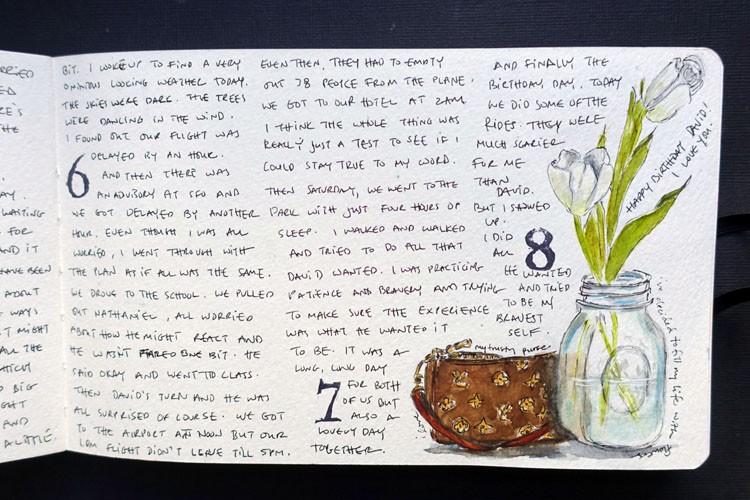 RRIED
ED
RE'S
THE
AY.
WASTING
FOR
AND IT
HAVE BEEN
ABOUT
WAYS
T MIGHT
ALL THE
O BIG
GHT
AND
A LITTLE
BIT. I WOKE UP TO FIND A VERY
OMINOUS LOOKING WEATHER TODAY.
THE SKIES WERE DARK. THE TREES
WERE DANCING IN THE WIND.
I FOUND OUT OUR FLIGHT WAS
DELAYED BY AN HOUR.
6 AND THEN THERE WAS
AN ADVISORY AT SFO AND
WE GOT DELAYED BY ANOTHER
HOUR. EVEN THOUGH I WAS ALL
WORRIED, I WENT THROUGH WITH
THE PLAN AS IF ALL WAS THE SAME.
WE DROVE TO THE SCHOOL. WE PULLED
OUT NATHANIEL, ALL WORRIED
ABOUT HOW HE MIGHT REACT AND
HE WASN'T FAZED ONE BIT. HE
SAID OKAY AND WENT TO CLASS.
THEN DAVID'S TURN AND HE WAS
ALL SURPRISED OF COURSE. WE GOT
TO THE AIRPORT AT NOON BUT OUR
1PM FLIGHT DIDN'T LEAVE TILL 5PM.
EVEN THEN, THEY HAD TO EMPTY
OUT 28 PEOPLE FROM THE PLANE.
WE GOT TO OUR HOTEL AT 2AM.
I THINK THE WHOLE THING WAS
REALLY JUST A TEST TO SEE IF I
COULD STAY TRUE TO MY WORD.
THEN SATURDAY, WE WENT TO THE
PARK WITH JUST FOUR HOURS OF
SLEEP. I WALKED AND WALKED
AND TRIED TO DO ALL THAT
DAVID WANTED. I WAS PRACTICING
PATIENCE AND BRAVERY AND TRYING
TO MAKE SURE THE EXPERIENCE
WAS WHAT HE WANTED IT
TO BE. IT WAS A
LONG, LONG DAY
7 FOR BOTH
OF US BUT
ALSO A
LOVELY DAY
TOGETHER.
AND FINALLY THE
BIRTHDAY DAY. TODAY
WE DID SOME OF THE
RIDES. THEY WERE
MUCH SCARIER
FOR ME
THAN
DAVID.
BUT I SHOWED
UP.
I DID
ALL 8
HE WANTED
AND TRIED
TO BE MY
BRAVEST
SELF.
my trusty purse
HAPPY BIRTHDAY DAVID!
I LOVE YOU!
i've decided to fill my life with
flowers